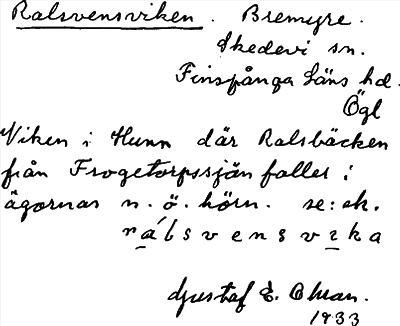 Ralsvensviken. Bremyre.
Skedevi sn.
Finspånga Läns hd.
Ögl
Viken i Hunn där Ralsbäcken
från Frogetorpssjön faller i
ägornas n.ö. hörn. se: ek.
rálsvensvika
Gustaf E. Oman.
1933